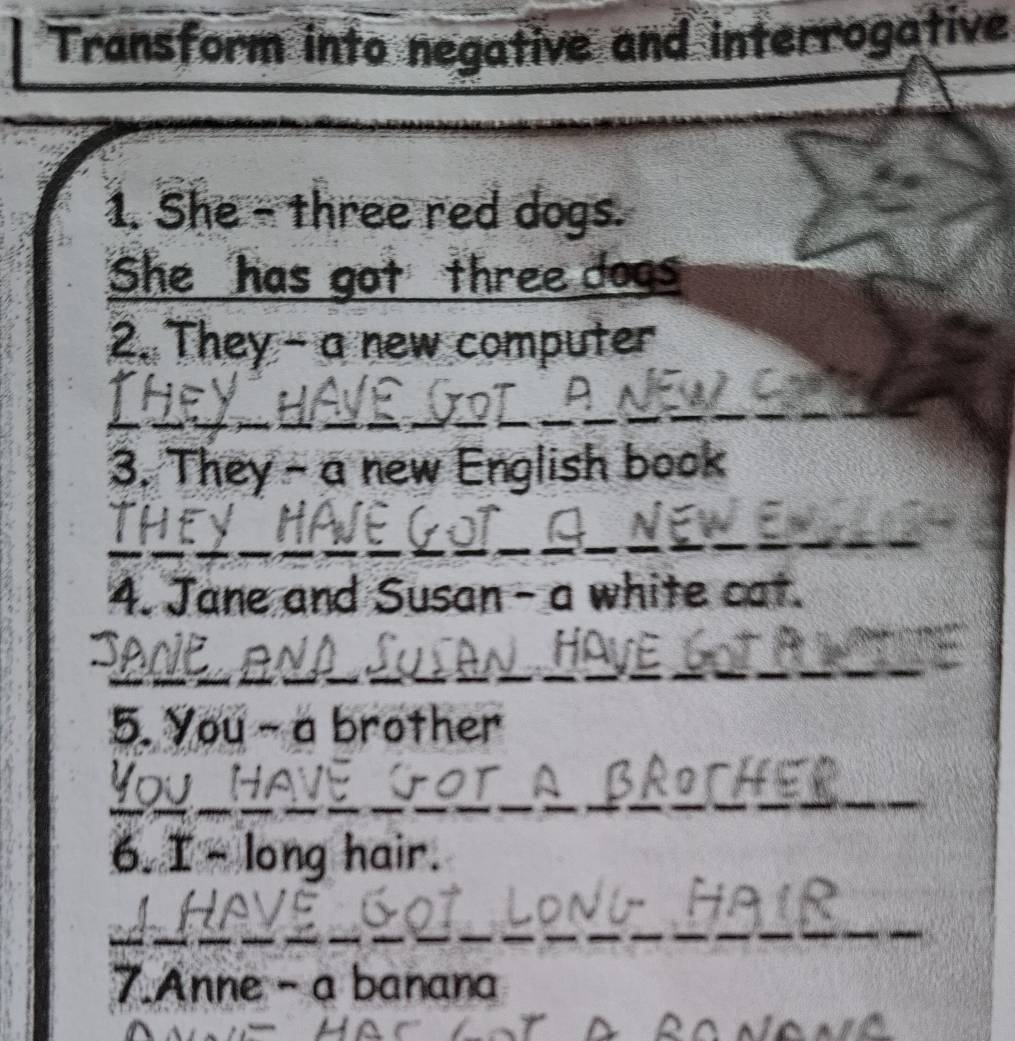 Transform into negative and interrogative
1. She - three red dogs.
She has got three dogs
2. They - a new computer
THEY HAVE GOT A NEW
3. They - a new English book
THEY HAVE GOT A NEW ENGLISH
4. Jane and Susan - a white cat.
JANE AND SUSAN HAVE GOT A
5. You - a brother
YOU HAVE GOT A BROTHER
6. I - long hair.
I HAVE GOT LONG HAIR
7.Anne - a banana
ANNE HAS GOT A BANANA